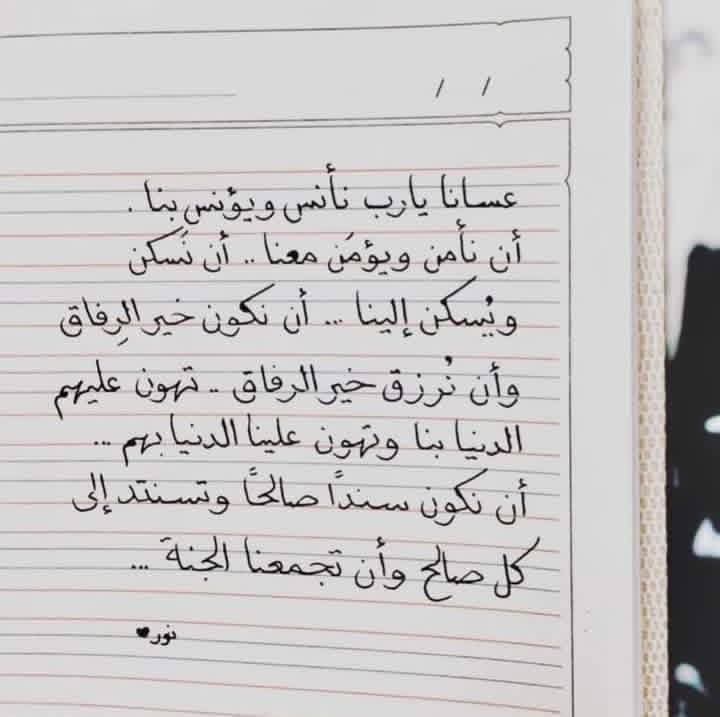 / /
عسانا يارب نأنس ويؤنس بنا .
أن نأمن ويؤمَن معنا .. أن نَسكن
ويُسكن إلينا ... أن نكون خير الرِفاق
وأن نُرزق خير الرفاق .. تهون عليهم
الدنيا بنا وتهون علينا الدنيا بهم ...
أن نكون سندًا صالحًا وتستند إلى
كل صالح وأن تجمعنا الجنة ...
نور♥